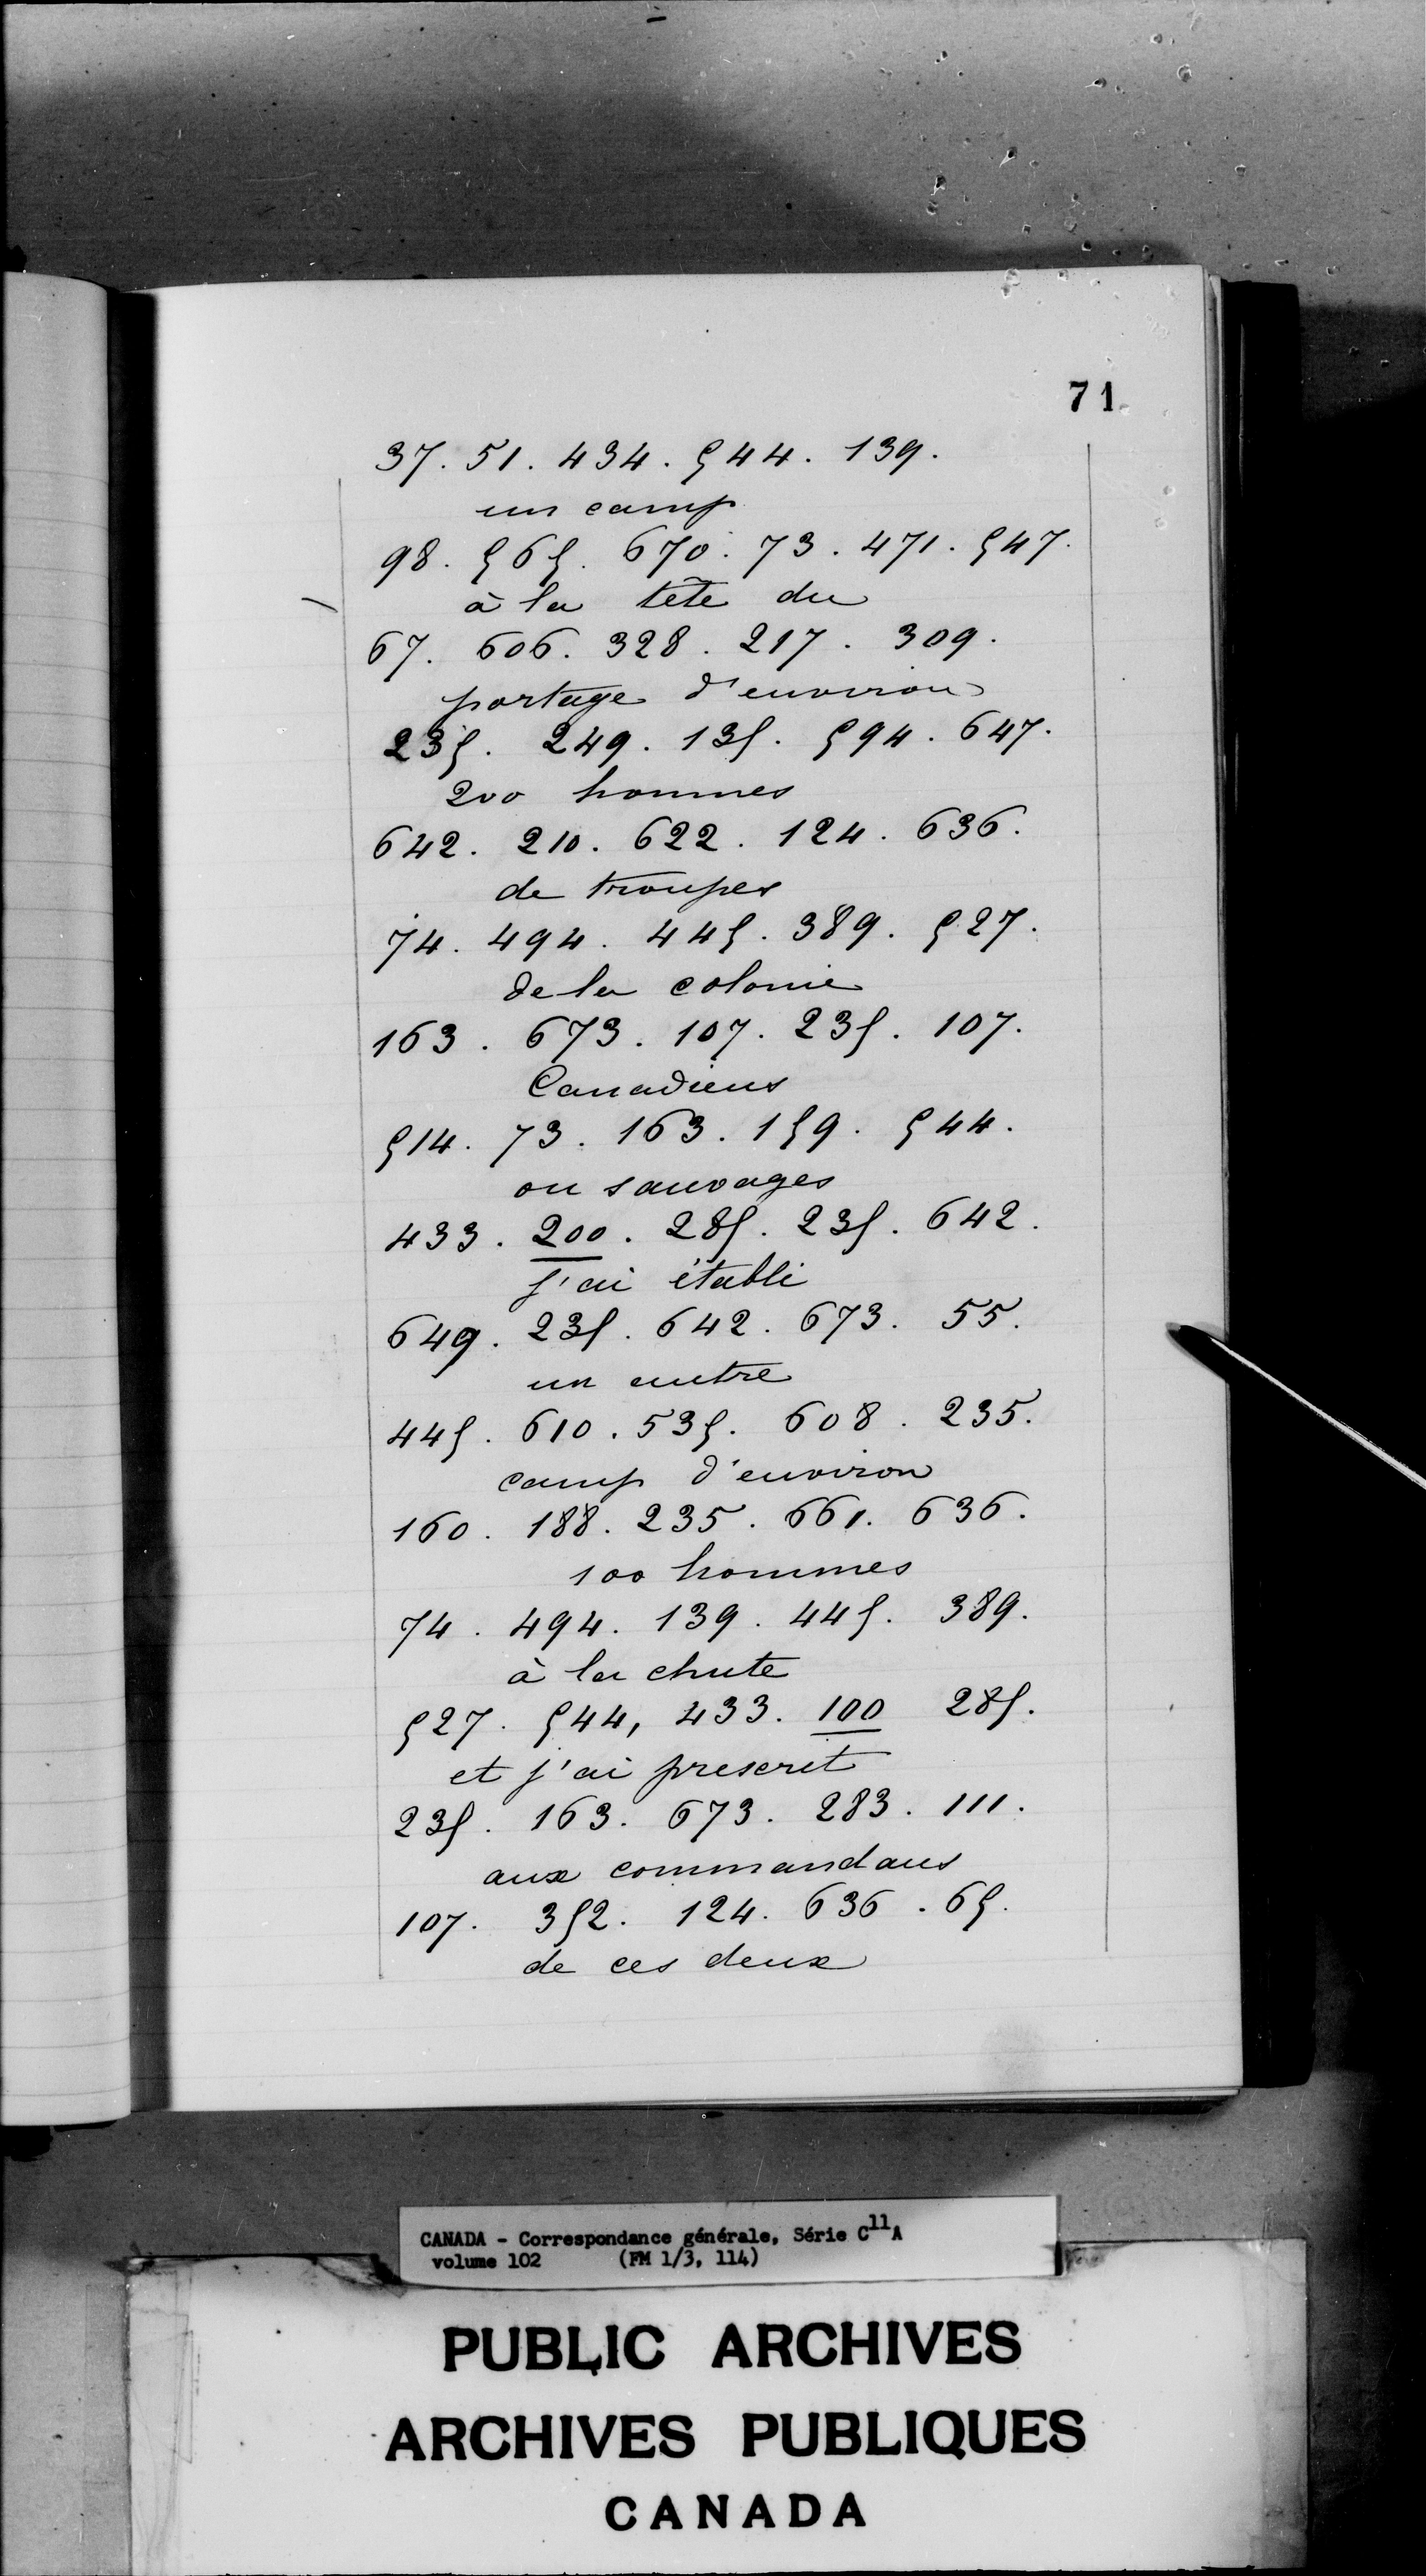 71
37. 51. 434. 544. 139.
un camp
98. 565. 670. 73. 471. 547.
à la tête du
67. 606. 328. 217. 309.
portage d'environ
235. 249. 135. 594. 647.
200 hommes
642. 210. 622. 124. 636.
de troupes
74. 494. 445. 389. 527.
de la colonie
163. 673. 107. 235. 107.
Canadiens
514. 73. 163. 159. 544.
ou sauvages
433. 200. 285. 235. 642.
j'ai établi
649. 235. 642. 673. 55.
un autre
445. 610. 535. 608. 235.
camp d'environ
160. 188. 235. 661. 636.
100 hommes
74. 494. 139. 445. 389.
à la chute
527. 544, 433. 100 285.
et j'ai prescrit
235. 163. 673. 283. 111.
aux commandans
107. 352. 124. 636. 65.
de ces deux
CANADA - Correspondance générale, Série C11A
volume 102 (FM 1/3, 114)
PUBLIC ARCHIVES
ARCHIVES PUBLIQUES
CANADA